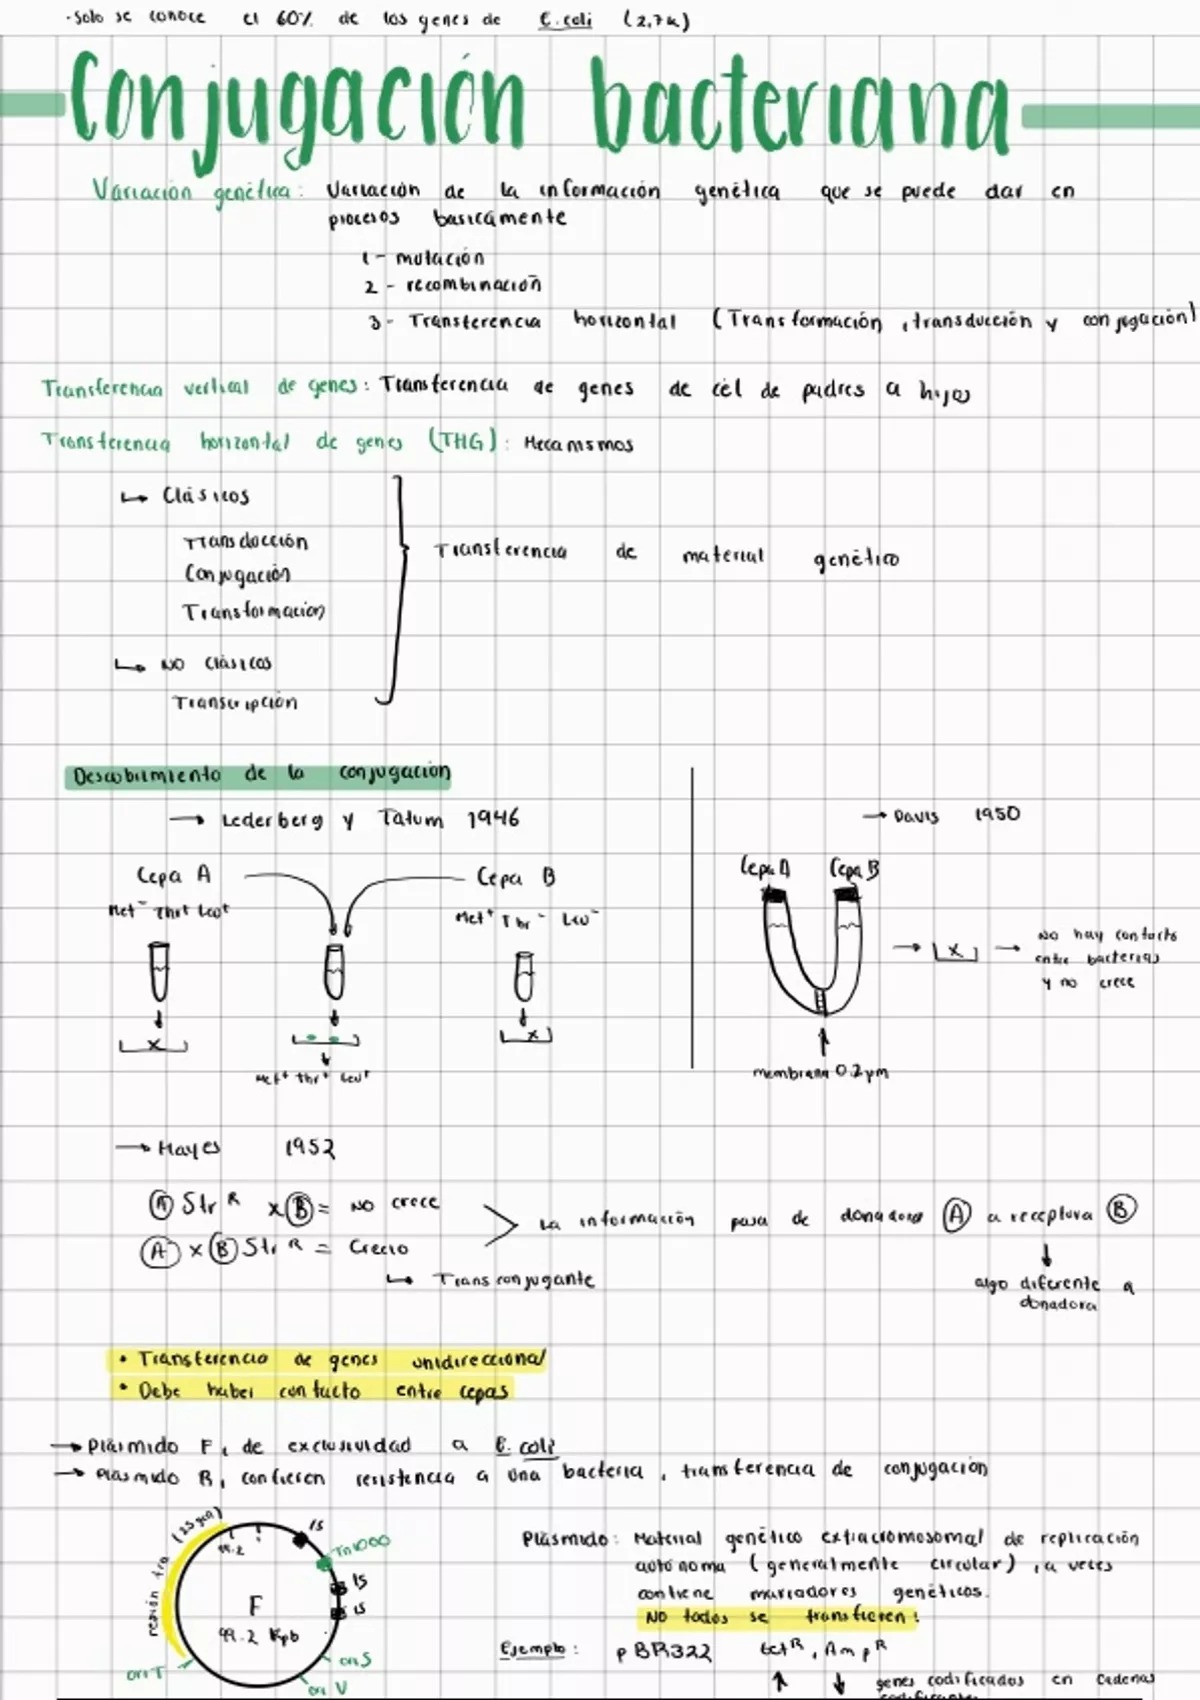 -Solo se conoce el 60% de los genes de E. coli (2,7k)
Conjugación bacteriana
Variación genética: Variación de la información genética que se puede dar en
procesos basicamente
1- mutación
2- recombinación
3- Transferencia horizontal (Transformación, transducción y conjugación)
Transferencia vertical de genes: Transferencia de genes de cél de padres a hijos
Transferencia horizontal de genes (THG): Mecanismos
↳ Clásicos
Transducción
Conjugación
Transformación
Transferencia de material genético
↳ NO Clásicos
Transcripción
Descubrimiento de la conjugación
→ Lederberg y Tatum 1946
Cepa A
Cepa B
Met⁻ Thr⁺ Leu⁺
Met⁺ Thr⁻ Leu⁻
x
x
Met⁺ Thr⁺ Leu⁺
→ Davis 1950
Cepa A Cepa B
→ x → NO hay contacto
entre bacterias
y no crece
membrana 0.2 µm
→ Hayes 1952
A Str R x B = NO crece
A x B Str R = Crecio
↳ Transconjugante
La información pasa de donadora A a receptora B
algo diferente a
donadora
• Transferencia de genes unidireccional
• Debe haber contacto entre cepas
→ Plásmido F, de exclusividad a E. coli
→ Plásmido R, confieren resistencia a una bacteria, transferencia de conjugación
región tra
99.2
IS
Tn1000
IS
IS
F
99.2 Kpb
oriT
oriS
ori V
Plásmido: Material genético extracromosomal de replicación
autónoma (generalmente circular), a veces
contiene marcadores genéticos.
NO todos se transfieren!
Ejemplo: pBR322 tet R, Amp R
genes codificados en cadenas